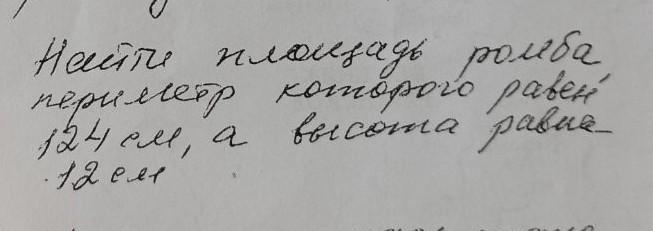 Найти площадь ромба,
периметр которого равен
124 см, а высота равна
12 см